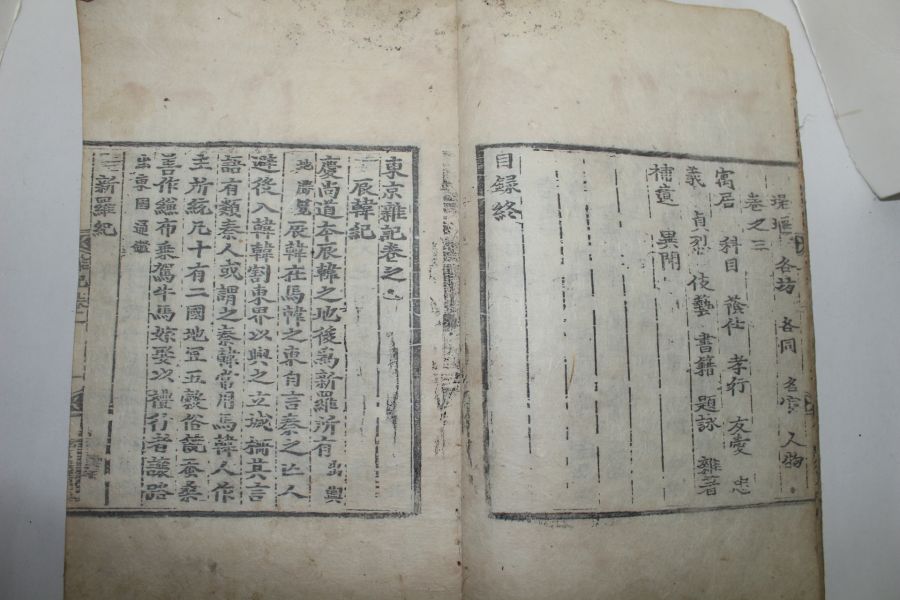 塔墟 各坊 各同 名宦 人物
卷之三
寓居 科目 蔭仕 孝行 友愛 忠
義 貞烈 伎藝 書籍 題詠 雜著
補遺 異聞
目錄終
東京雜記卷之一
辰韓紀
慶尚道本辰韓之地後爲新羅所有 出輿
地勝覽 辰韓在馬韓之東自言秦之亡人
避役入韓韓割東界以與之立城柵其言
語有類秦人或謂之秦韓常用馬韓人作
主所統凡十有二國地宜五穀俗饒蚕桑
善作縑布乘駕牛馬嫁娶以禮行者讓路
出東國通鑑
新羅紀